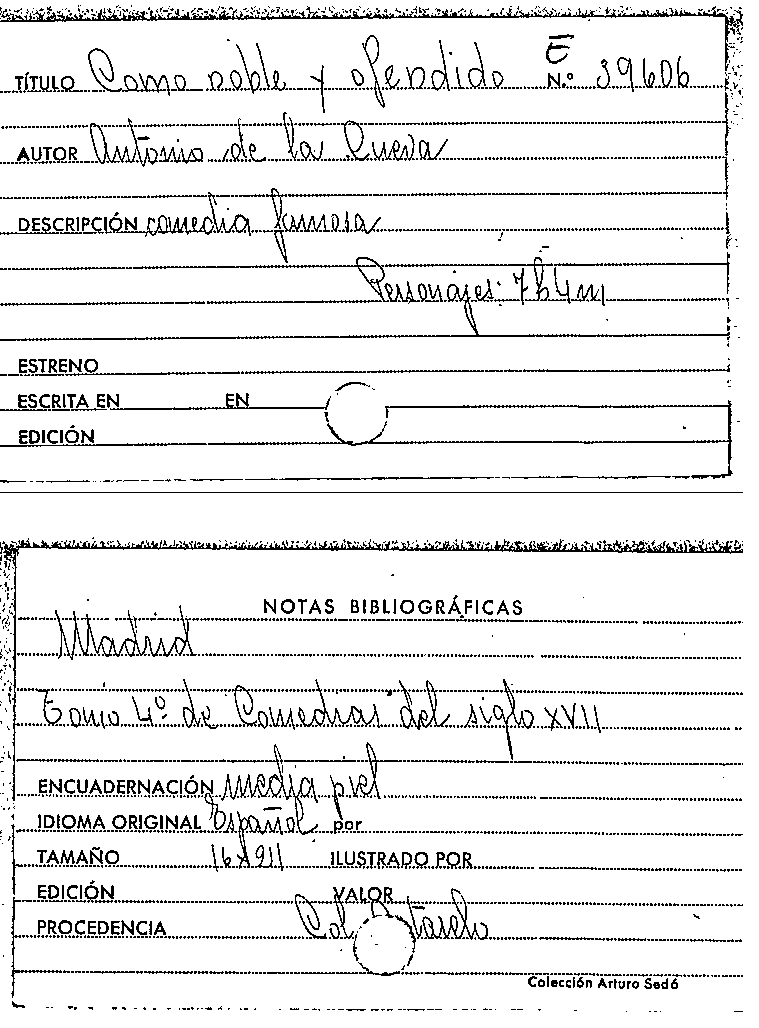 E
TÍTULO Como noble y ofendido N.º 39606
AUTOR Antonio de la Cueva
DESCRIPCIÓN comedia famosa
Personajes: 7h4m
ESTRENO
ESCRITA EN EN
EDICIÓN
NOTAS BIBLIOGRÁFICAS
Madrid
Tomo 4º de Comedias del siglo XVII
ENCUADERNACIÓN media piel
IDIOMA ORIGINAL Español por
TAMAÑO ILUSTRADO POR
EDICIÓN VALOR
PROCEDENCIA Col
Colección Arturo Sedó